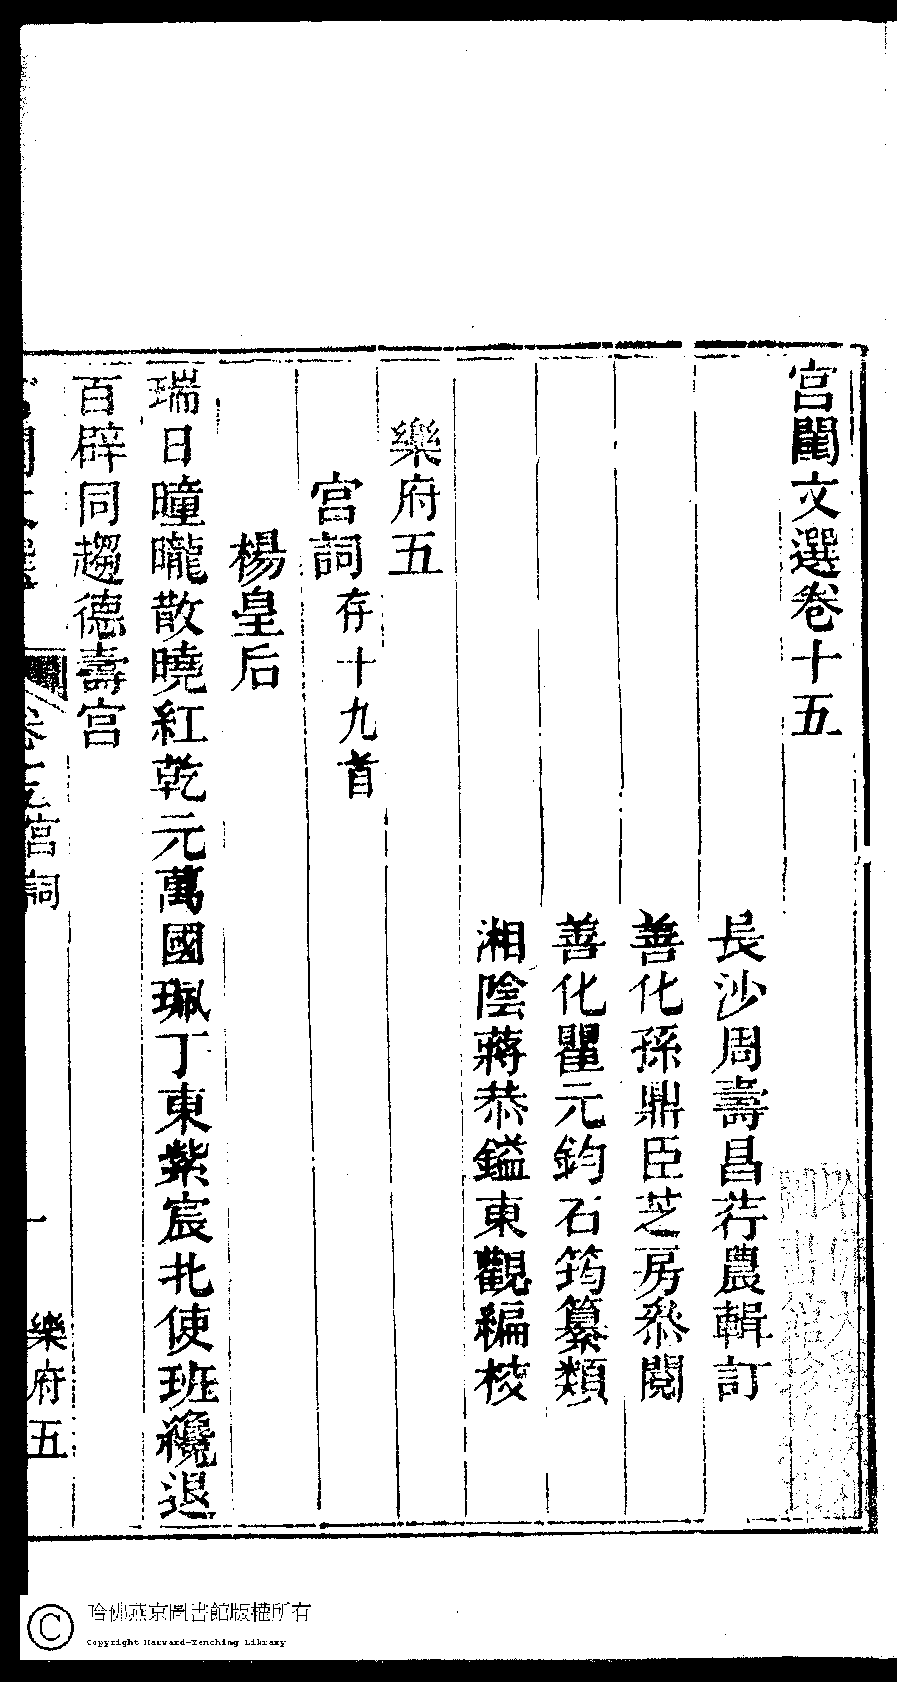 宮閨文選卷十五
長沙周壽昌荇農輯訂
善化孫鼎臣芝房叅閱
善化瞿元鈞石筠纂類
湘陰蔣恭鎰東觀編校
樂府五
宮詞存十九首
楊皇后
瑞日曈曨散曉紅乾元萬國珮丁東紫宸北使班纔退
百辟同趨德壽宮
宮閨文選
卷十五宮詞
一
樂府五
哈佛燕京圖書館版權所有
Copyright Harvard-Yenching Library